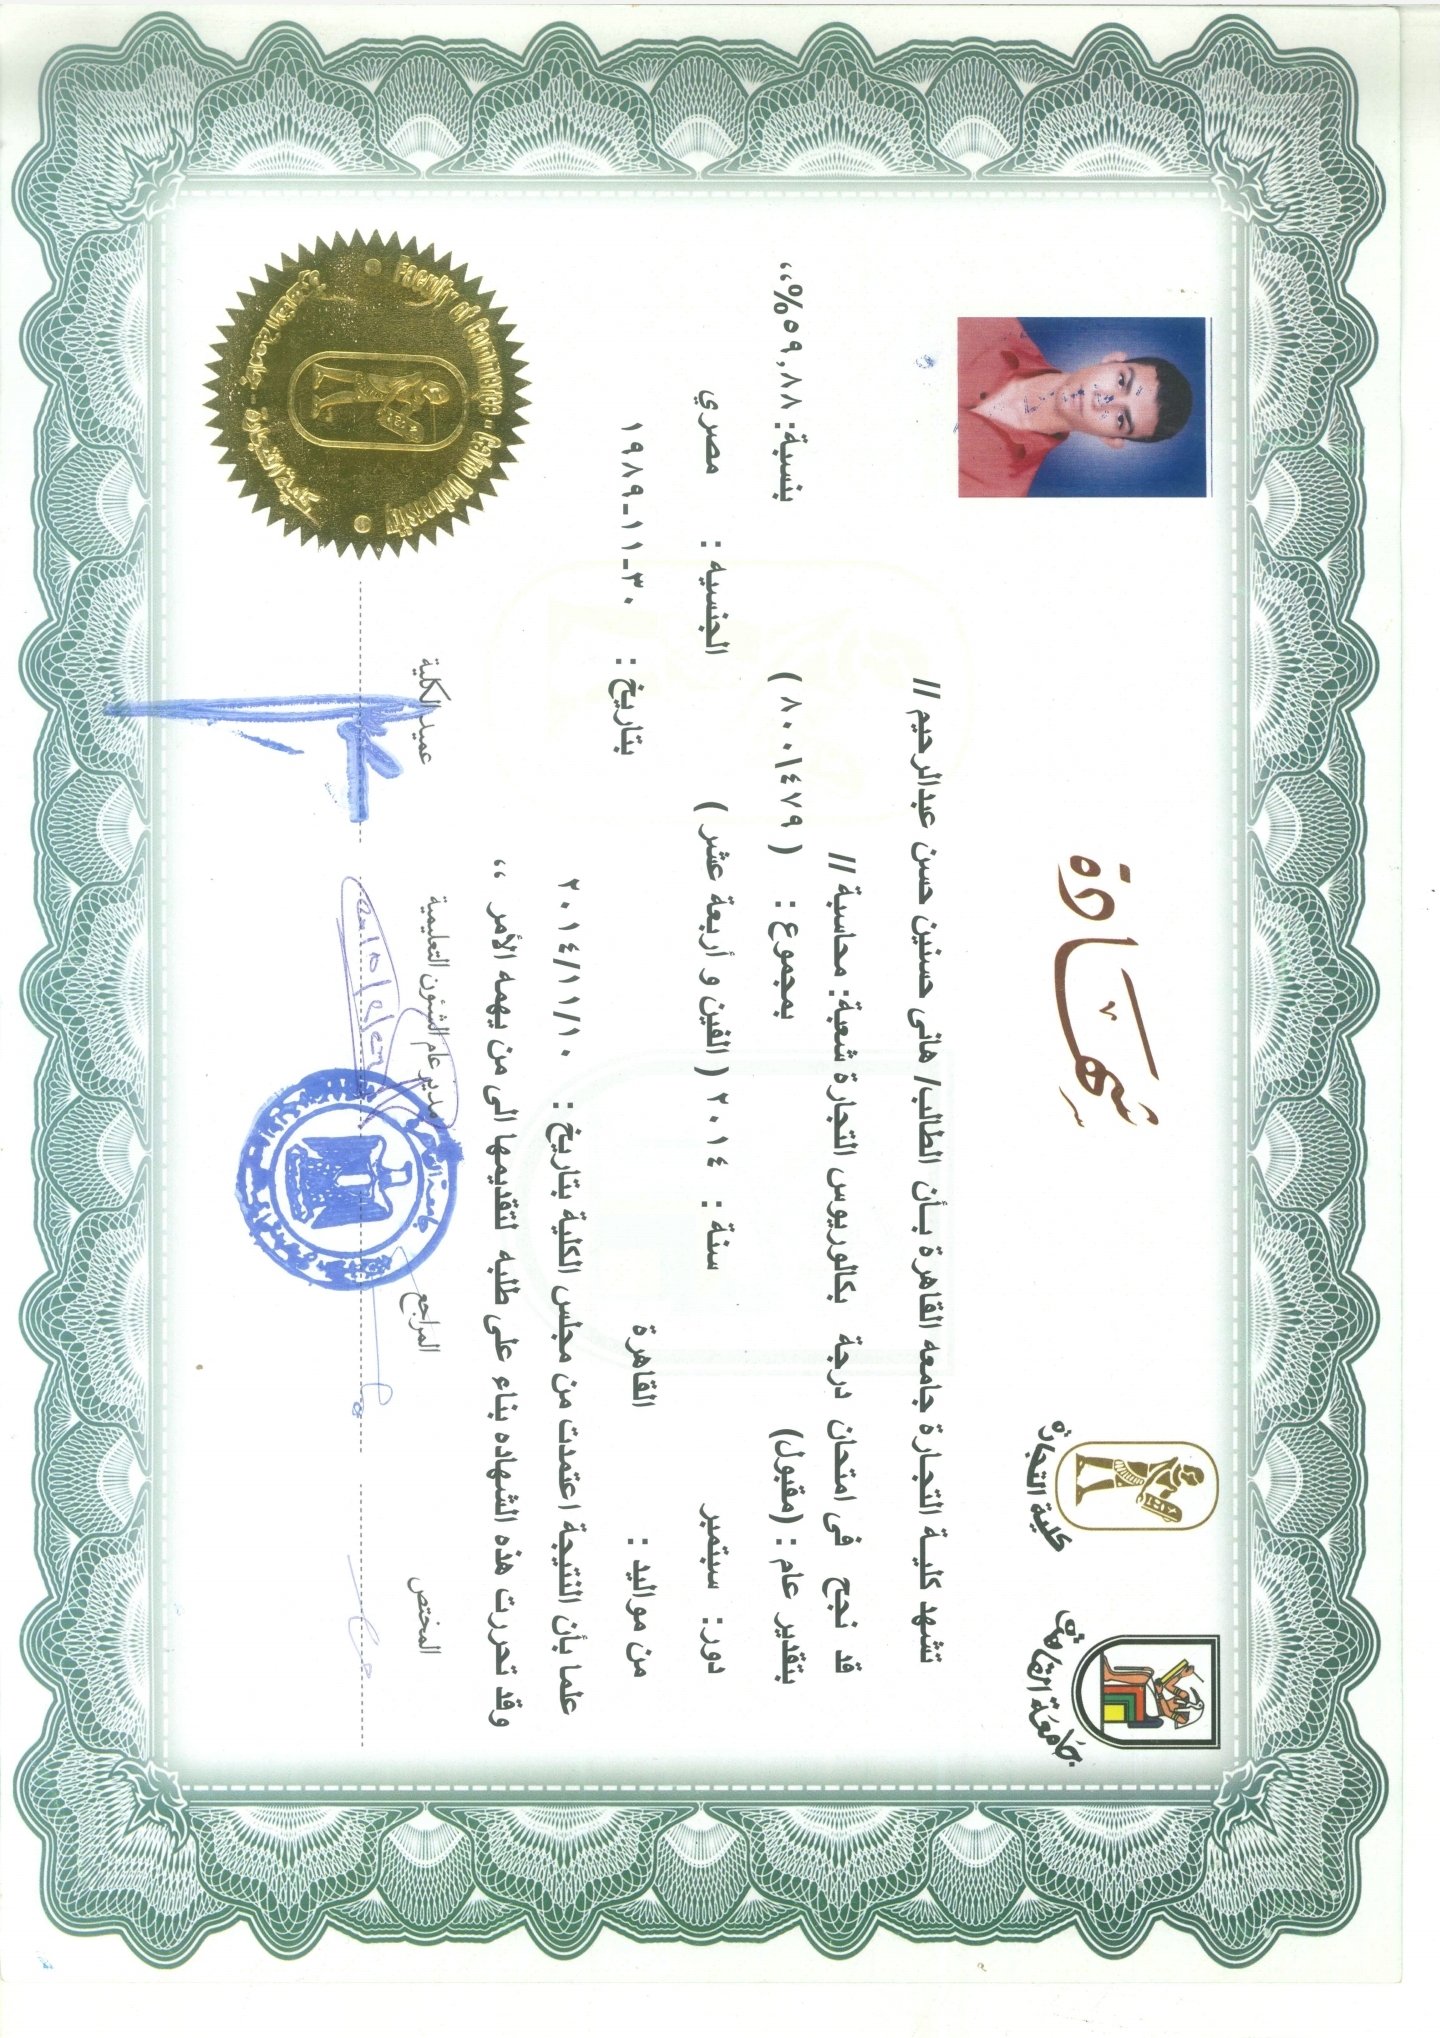 جامعة القاهرة
كلية التجارة
شهادة
تشهد كليــة التجـارة جامعه القاهرة بـأن الطالب/ هانى حسنين حسن عبدالرحيم //
قد نجح فى امتحان درجة بكالوريوس التجارة شعبة: محاسبة //
بتقدير عام : (مقبول) بمجموع : ( ٨٠٠\٤٧٩ ) بنسبة: ٥٩,٨٨%،،
دور: سبتمبر سنة : ٢٠١٤ ( الفين و أربعة عشر ) الجنسيه : مصري
من مواليد : القاهرة بتاريخ : ٣٠-١١-١٩٨٩
علما بأن النتيجة اعتمدت من مجلس الكلية بتاريخ : ٢٠١٤/١١/١٠
وقد تحررت هذه الشهاده بناء على طلبه لتقديمها الى من يهمه الأمر ،،
المختص المراجع مدير عام الشئون التعليمية عميد الكلية
Faculty of Commerce - Cairo University
كلية التجارة - جامعة القاهرة